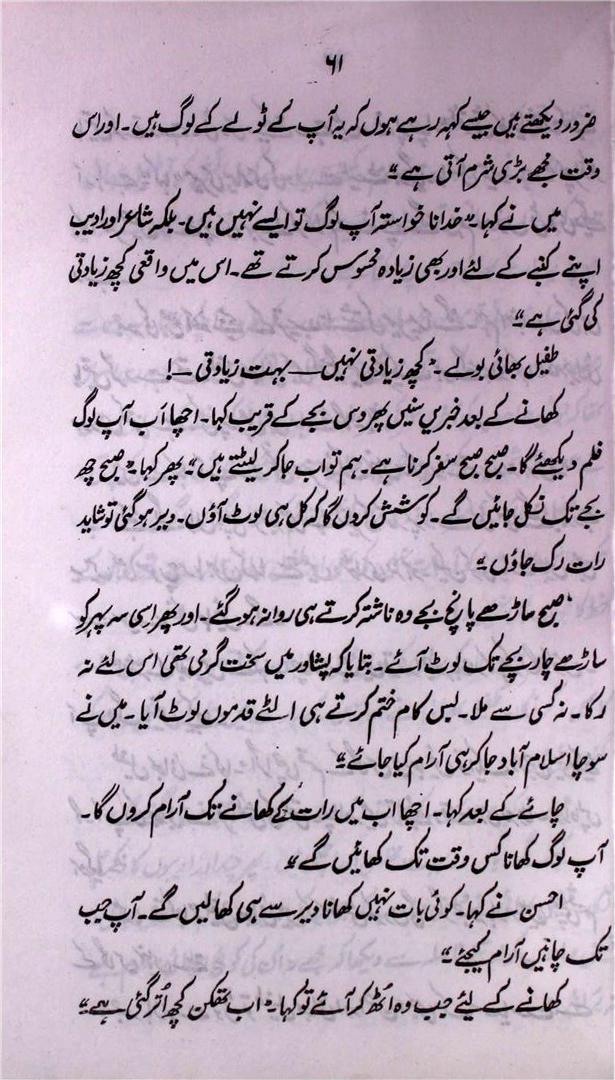 ۶۱
ضرور دیکھتے ہیں جیسے کہہ رہے ہوں کہ یہ آپ کے ٹولے کے لوگ ہیں۔ اور اس
وقت مجھے بڑی شرم آتی ہے“
میں نے کہا۔ ”خدانا خواستہ آپ لوگ تو ایسے نہیں ہیں۔ بلکہ شاعر اور ادیب
اپنے کنبے کے لئے اور بھی زیادہ محسوس کرتے تھے۔ اس میں واقعی کچھ زیادتی
کی گئی ہے“
طفیل بھائی بولے۔ ”کچھ زیادتی نہیں — بہت زیادتی —!
کھانے کے بعد خبریں سنیں پھر دس بجے کے قریب کہا۔ اچھا اب آپ لوگ
فلم دیکھئے گا۔ صبح صبح سفر کرنا ہے۔ ہم تو اب جا کر لیٹتے ہیں“ پھر کہا۔ ”صبح چھ
بجے تک نکل جائیں گے۔ کوشش کروں گا کہ کل ہی لوٹ آؤں۔ دیر ہو گئی تو شاید
رات رک جاؤں“
صبح ساڑھے پانچ بجے وہ ناشتہ کرتے ہی روانہ ہو گئے۔ اور پھر اسی سہ پہر کو
ساڑھے چار بجے تک لوٹ آئے۔ بتایا کہ پشاور میں سخت گرمی تھی اس لئے نہ
رکا۔ نہ کسی سے ملا۔ بس کام ختم کرتے ہی الٹے قدموں لوٹ آیا۔ میں نے
سوچا اسلام آباد جا کر ہی آرام کیا جائے“
چائے کے بعد کہا۔ اچھا اب میں رات کے کھانے تک آرام کروں گا۔
آپ لوگ کھانا کس وقت تک کھائیں گے“
احسن نے کہا۔ کوئی بات نہیں کھانا دیر سے ہی کھا لیں گے۔ آپ جب
تک چاہیں آرام کیجئے“
کھانے کے لیئے جب وہ اُٹھ کر آئے تو کہا۔ ”اب تھکن کچھ اُتر گئی ہے“